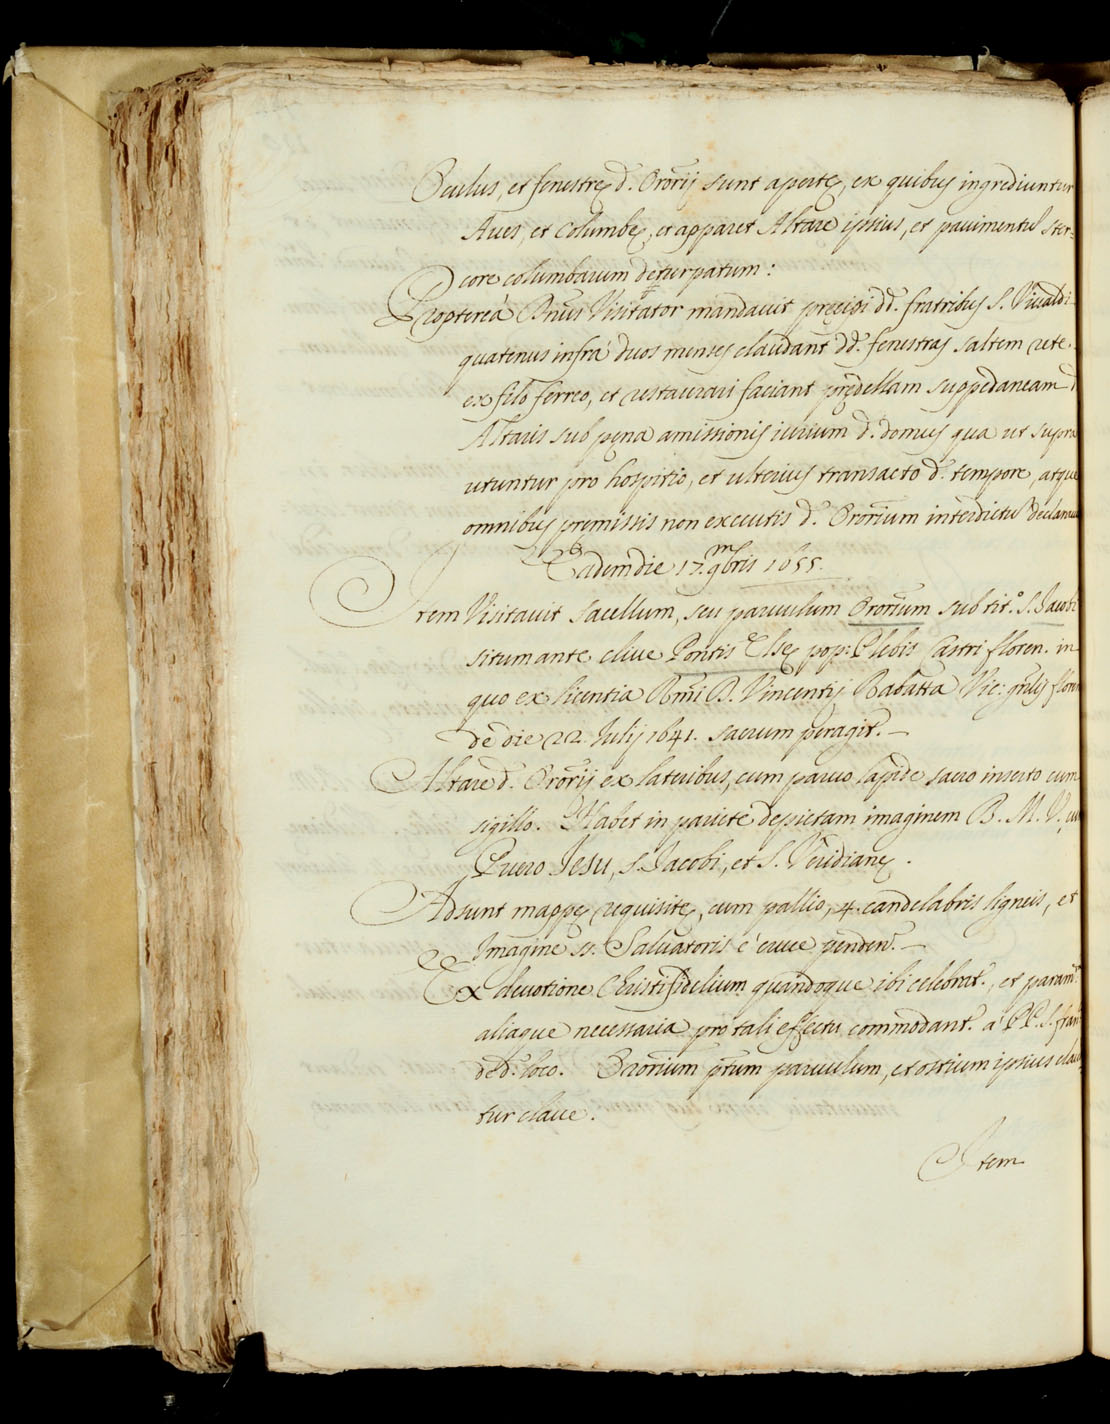 Oculus, et fenestrę d. Orõrij sunt apertę, ex quibus ingrediuntur
Aues, et Columbę, et apparet Altare ipsius, et pauimentũ ster-
core columbarum deturpatum:
Propterea Rm̃us Visitator mandauit pręcipi dd. fratribus S. Viualdi
quatenus infrà duos menses claudant dd. fenestras saltem rete
ex filo ferreo, et restaurari faciant prędellam suppedaneam d.
Altaris sub pęna amissionis iurium d. domus qua ut supra
utuntur pro hospitio, et ulterius transacto d. tempore, atque
omnibus pręmissis non executis d. Orõrium interdictũ declarauit
Eadem die 17. 9m̃bris 1655.
Item Visitauit Sacellum, seu paruulum Orõrium sub tit.º S. Iacobi
situm ante cliue Pontis Elsę pop: Plebis Castri floren. in
quo ex licentia Rm̃i D. Vincentij Rabatta Vic: gñlis floren
de die 22. Iulij 1641. sacrum peragit. –
Altare d. Orõrij ex lateribus, cum paruo lapide sacro inserto cum
sigillo. Habet in pariete depictam imaginem B. M. V. cum
Puero Iesu, S. Iacobi, et S. Viridianę.
Adsunt mappę requisitę, cum pallio, 4. candelabris ligneis, et
Imagine SS. Saluatoris è cruce penden. –
Ex deuotione Christifidelium quandoque ibi celebrat., et param.ta
aliaque necessaria pro tali effectu commodant. à PP. S. fran.
de d. loco. Orõrium ptum paruulum, et ostium ipsius clau
tur claue.
Item